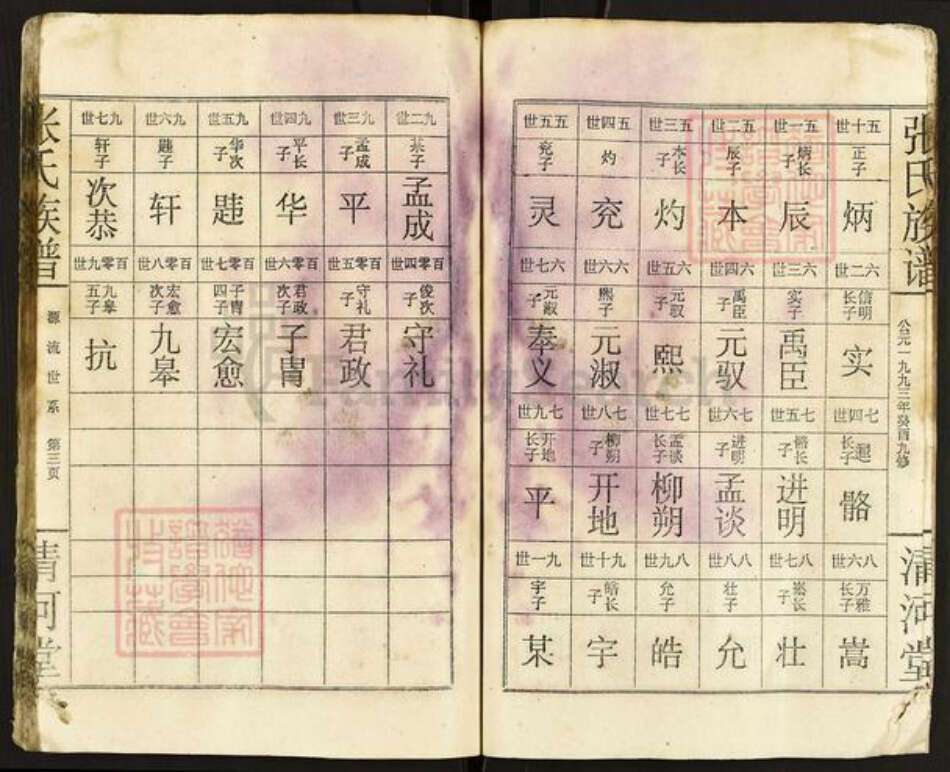 張氏族谱
公元一九九三年癸酉九修
清河堂
五十世 五一世 五二世 五三世 五四世 五五世
正子 炳长子 辰子 本长子 灼 兖子
炳 辰 本 灼 兖 灵
六二世 六三世 六四世 六五世 六六世 六七世
信明长子 实子 禹臣子 元驭子 熙子 元淑子
实 禹臣 元驭 熙 元淑 奉义
七四世 七五世 七六世 七七世 七八世 七九世
长子 骼长子 进明子 孟谈长子 柳朔子 开地长子
骼 进明 孟谈 柳朔 开地 平
八六世 八七世 八八世 八九世 九十世 九一世
万雅长子 嵩长子 壮子 允子 皓长子 宇子
嵩 壮 允 皓 宇 某
九二世 九三世 九四世 九五世 九六世 九七世
某子 孟成子 平长子 华次子 韪子 轩子
孟成 平 华 韪 轩 次恭
百零四世 百零五世 百零六世 百零七世 百零八世 百零九世
俊次子 守礼子 君政次子 子胄四子 宏愈次子 九皋五子
守礼 君政 子胄 宏愈 九皋 抗
张氏族谱
源流世系 第三页
清河堂
FamilySearch